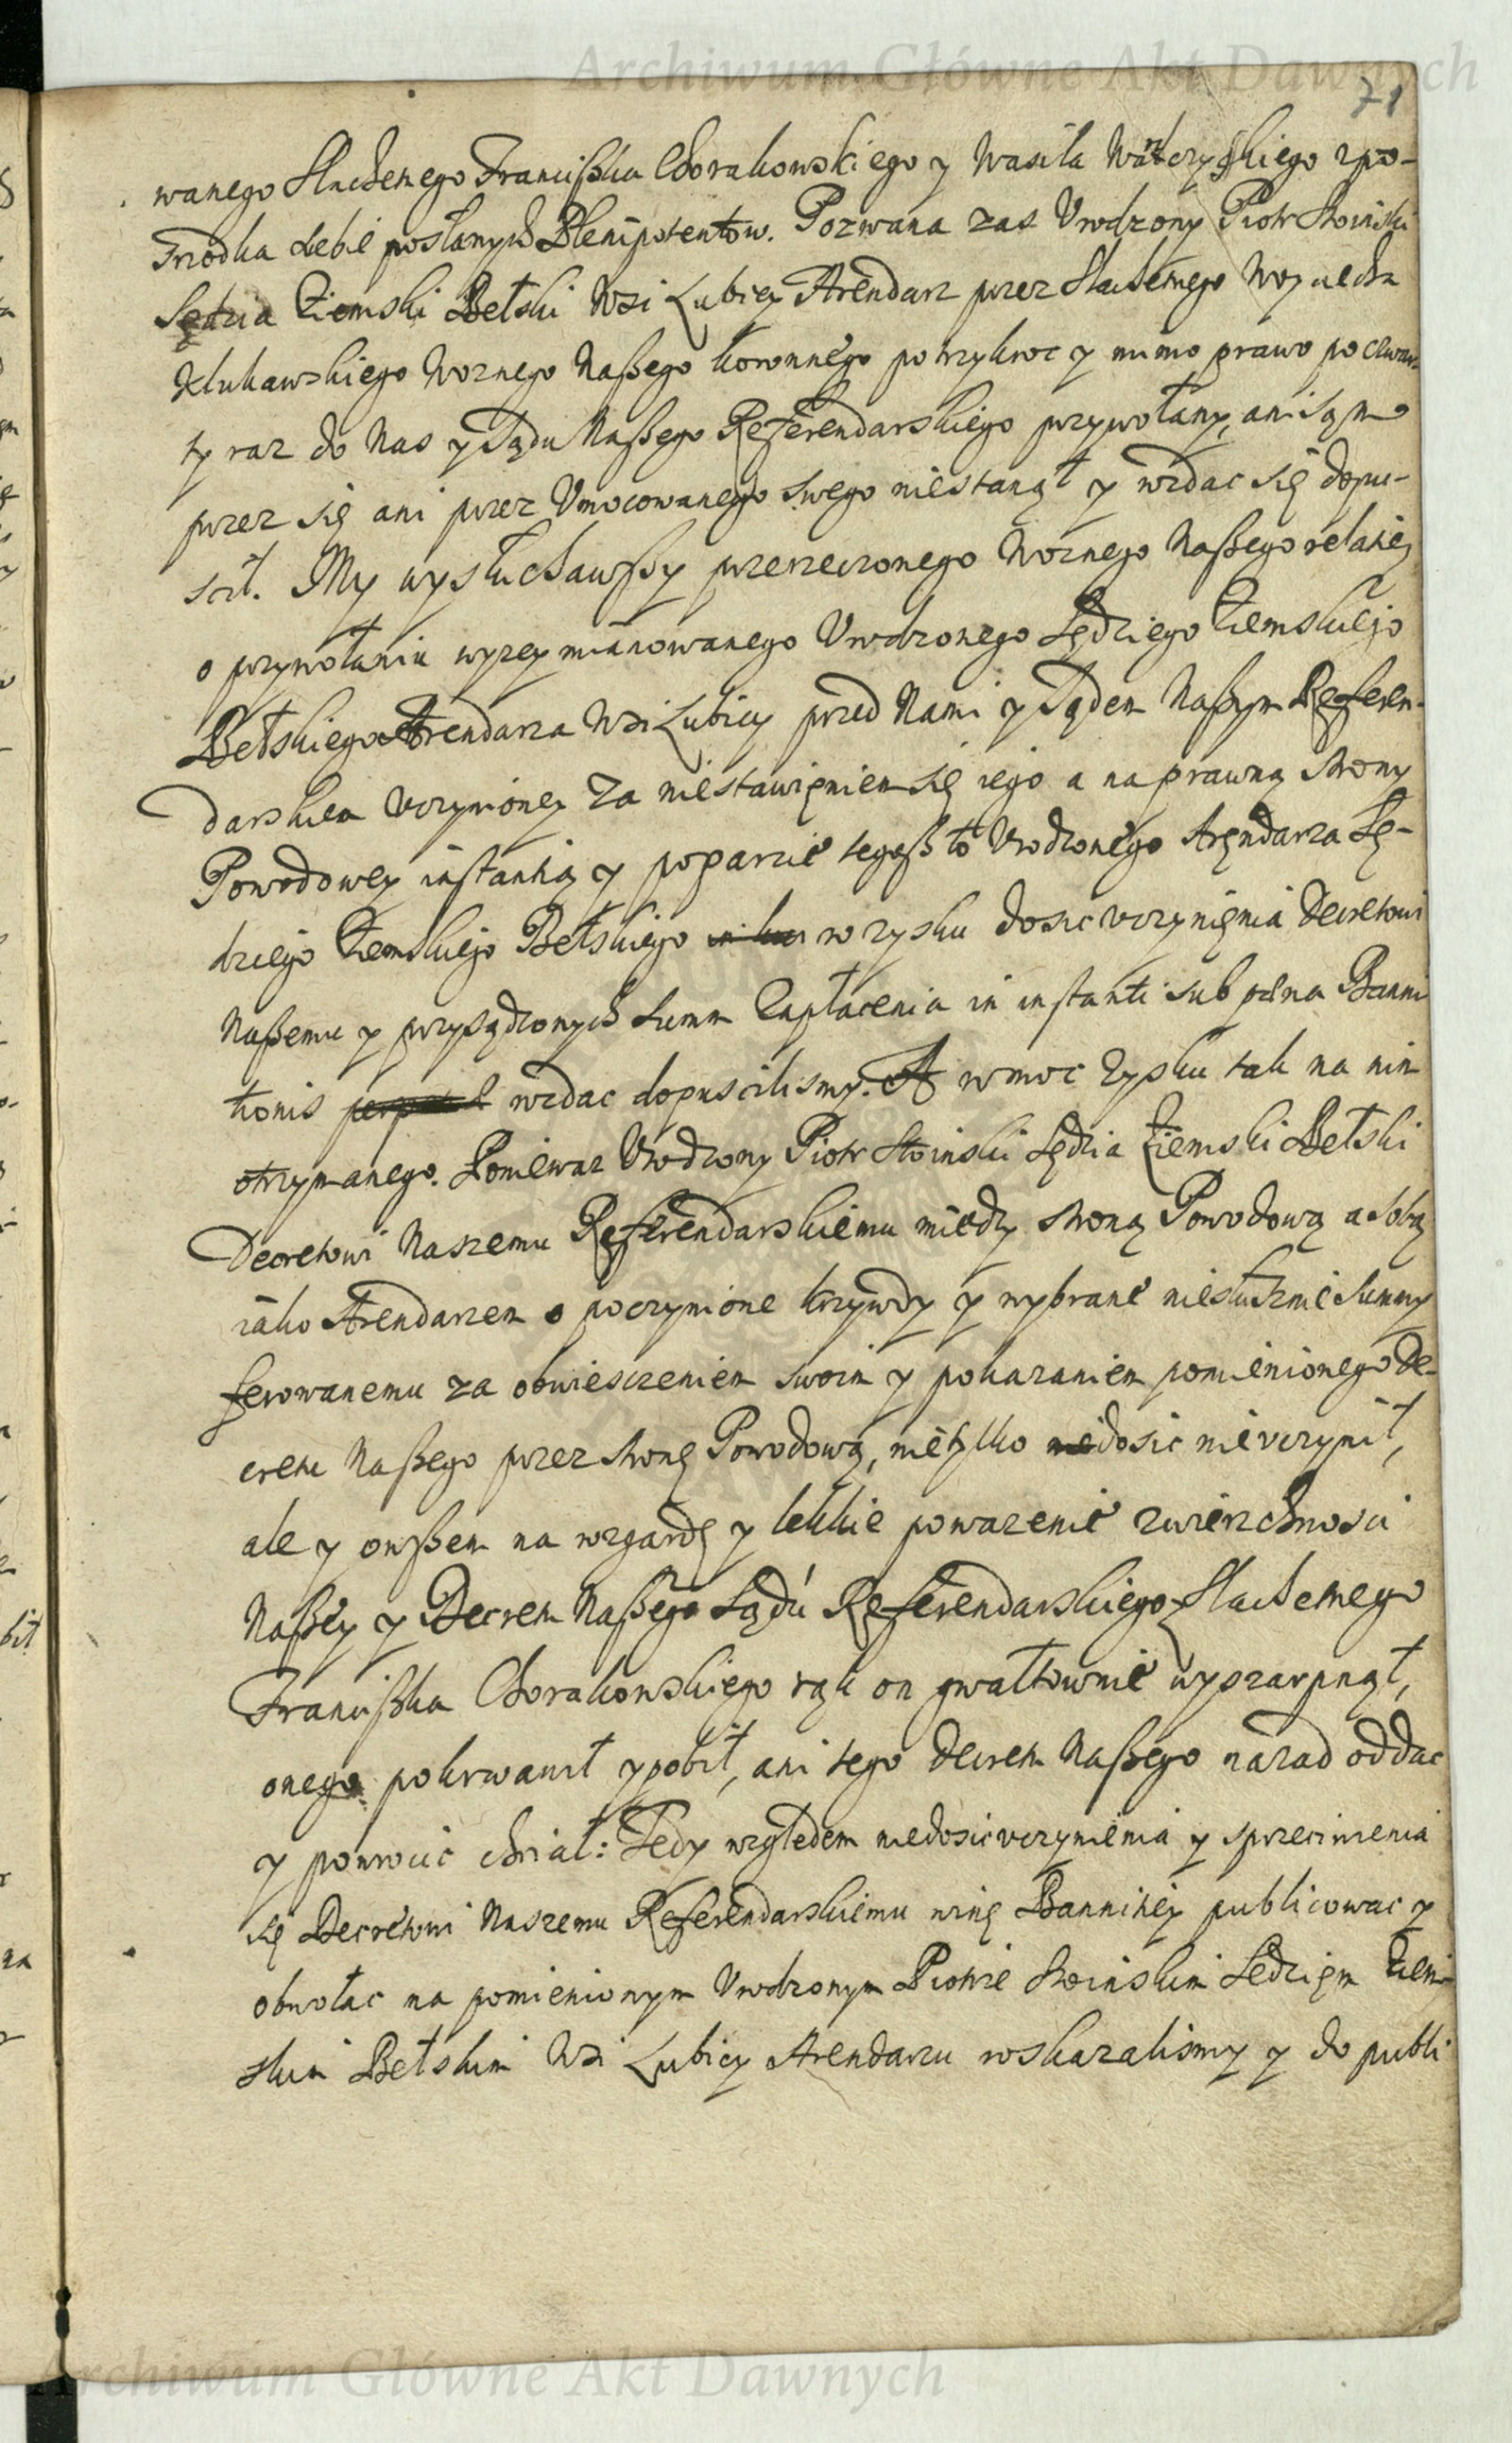 Archiwum Główne Akt Dawnych
71
wanego Slachetnego Franciszka Chorakowskiego y Wasila zpo-
srodka siebie posłanych Plenipotentow. Pozwana zas Vrodzony Piotr Stoinski
Sędzia Ziemski Bełski Wsi Lubicy Arendarz przez Slachetnego Woyciecha
Klukawskiego Woznego Naszego koronnego potrzykroc y mimo prawo poczwar-
ty raz do Nas y Sądu Naszego Referendarskiego przywołany, ani sąm
przez się ani przez Vmocowanego swego niestanął y wzdac się dopu-
scił. My wysłuchawszy przerzeczonego Woznego Naszego relatiey
o przywołaniu wyzey mianowanego Vrodzonego Sędziego Ziemskiego
Bełskiego Arendarza Wsi Lubicy przed Nami y Sądem Naszym Referen-
darskim vczynioney za niestawięniem się iego a na prawną strony
Powodowey instantią y poparcie tegosz to Vrodzonego Aręndarza Sę-
dziego Ziemskiego Bełskiego w zysku dosic vczynięnia Decretowi
Naszemu y przysądzonych Summ Zapłacenia in instanti sub pæna Banni-
tionis wzdac dopuscilismy. A w moc Zysku tak na nim
otrzymanego. Poniewaz Vrodzony Piotr Stoinski Sędzia Ziemski Bełski
Decretowi Naszemu Referendarskiemu miedzy stroną Powodową a sobą
iáko Arendarzem o poczynione krzywdy y wybrane niesłusznie Summy
ferowanemu za obwiesczeniem swoim y pokazaniem pomienionego De-
cretu Naszego przez stronę Powodową, nietylko dosic nievczynił,
ale y owszem na wzgardę y lekkie powazenie zwierzchnosci
Naszey y Decretu Naszego Sądu Referendarskiego Slachetnego
Franciszka Chorakowskiego rąk on gwałtownie wyszarpnął,
onego pokrwawił y pobił, ani tego Decretu Naszego nazad oddac
y powrocic chciał: Tedy względem niedosicvczynienia y sprzeciwienia
się Decretowi Naszemu Referendarskiemu winę Bannitiey publicowac y
obwołac na pomienionym Vrodzonym Piotrze Stoinskim Sędzięm Ziem-
skim Bełskim Wsi Lubicy Arendarzu roskazalismy y do publi
Archiwum Główne Akt Dawnych